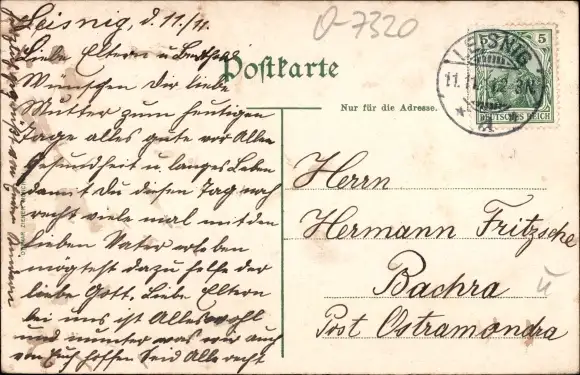 Leisnig, d. 11./11.
Liebe Eltern u.
Wünschen Dir liebe
Mutter zum heutigen
Tage alles gute vor Allen
Gesundheit u. langes Leben
damit du diesen Tag noch
recht viele mal mit den
lieben Vater erleben
mögtest dazu helfe der
liebe Gott. Liebe Eltern
bei uns ist Alles wohl
und munter was wir auch
von Euch hoffen Seid Alle recht
Postkarte
Nur für die Adresse.
0-7320
LEISNIG
11.11.
5
DEUTSCHES REICH
Herrn
Hermann Fritzsche
Bachra
Post Ostramondra